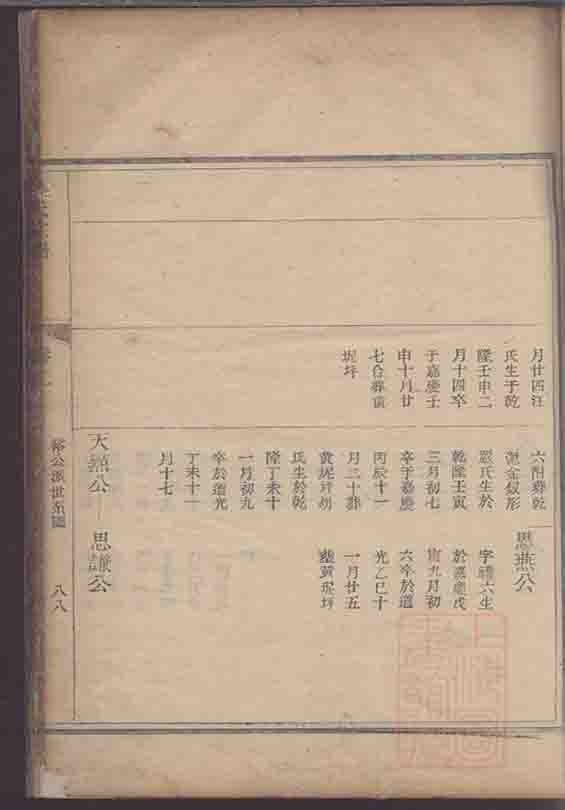 月廿四汪
氏生于乾
隆壬申二
月十四卒
于嘉慶壬
申十月廿
七合葬黃
坭坪
六附葬乾
鼓金釵形
殷氏生於
乾隆壬寅
三月初七
卒于嘉慶
丙辰十一
月二十葬
黃坭坪胡
氏生於乾
隆丁未十
一月初九
卒於道光
丁未十一
月十七
天燕公
思燕公
字禮六生
於嘉慶戊
寅九月初
六卒於道
光乙巳十
一月廿五
葬黃坭坪
思謙公
裕公派世系圖
八八